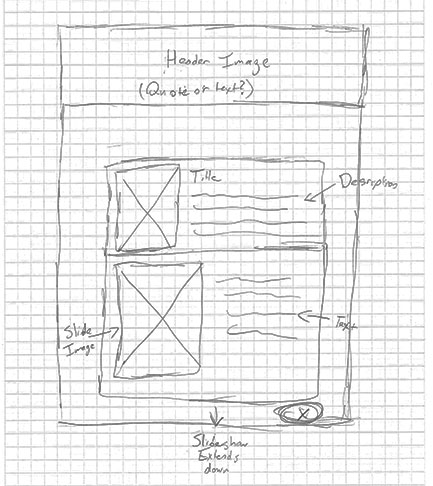 Header Image
(Quote or text?)
Title
Description
Slide
Image
Text
X
Slideshow
Extends
down